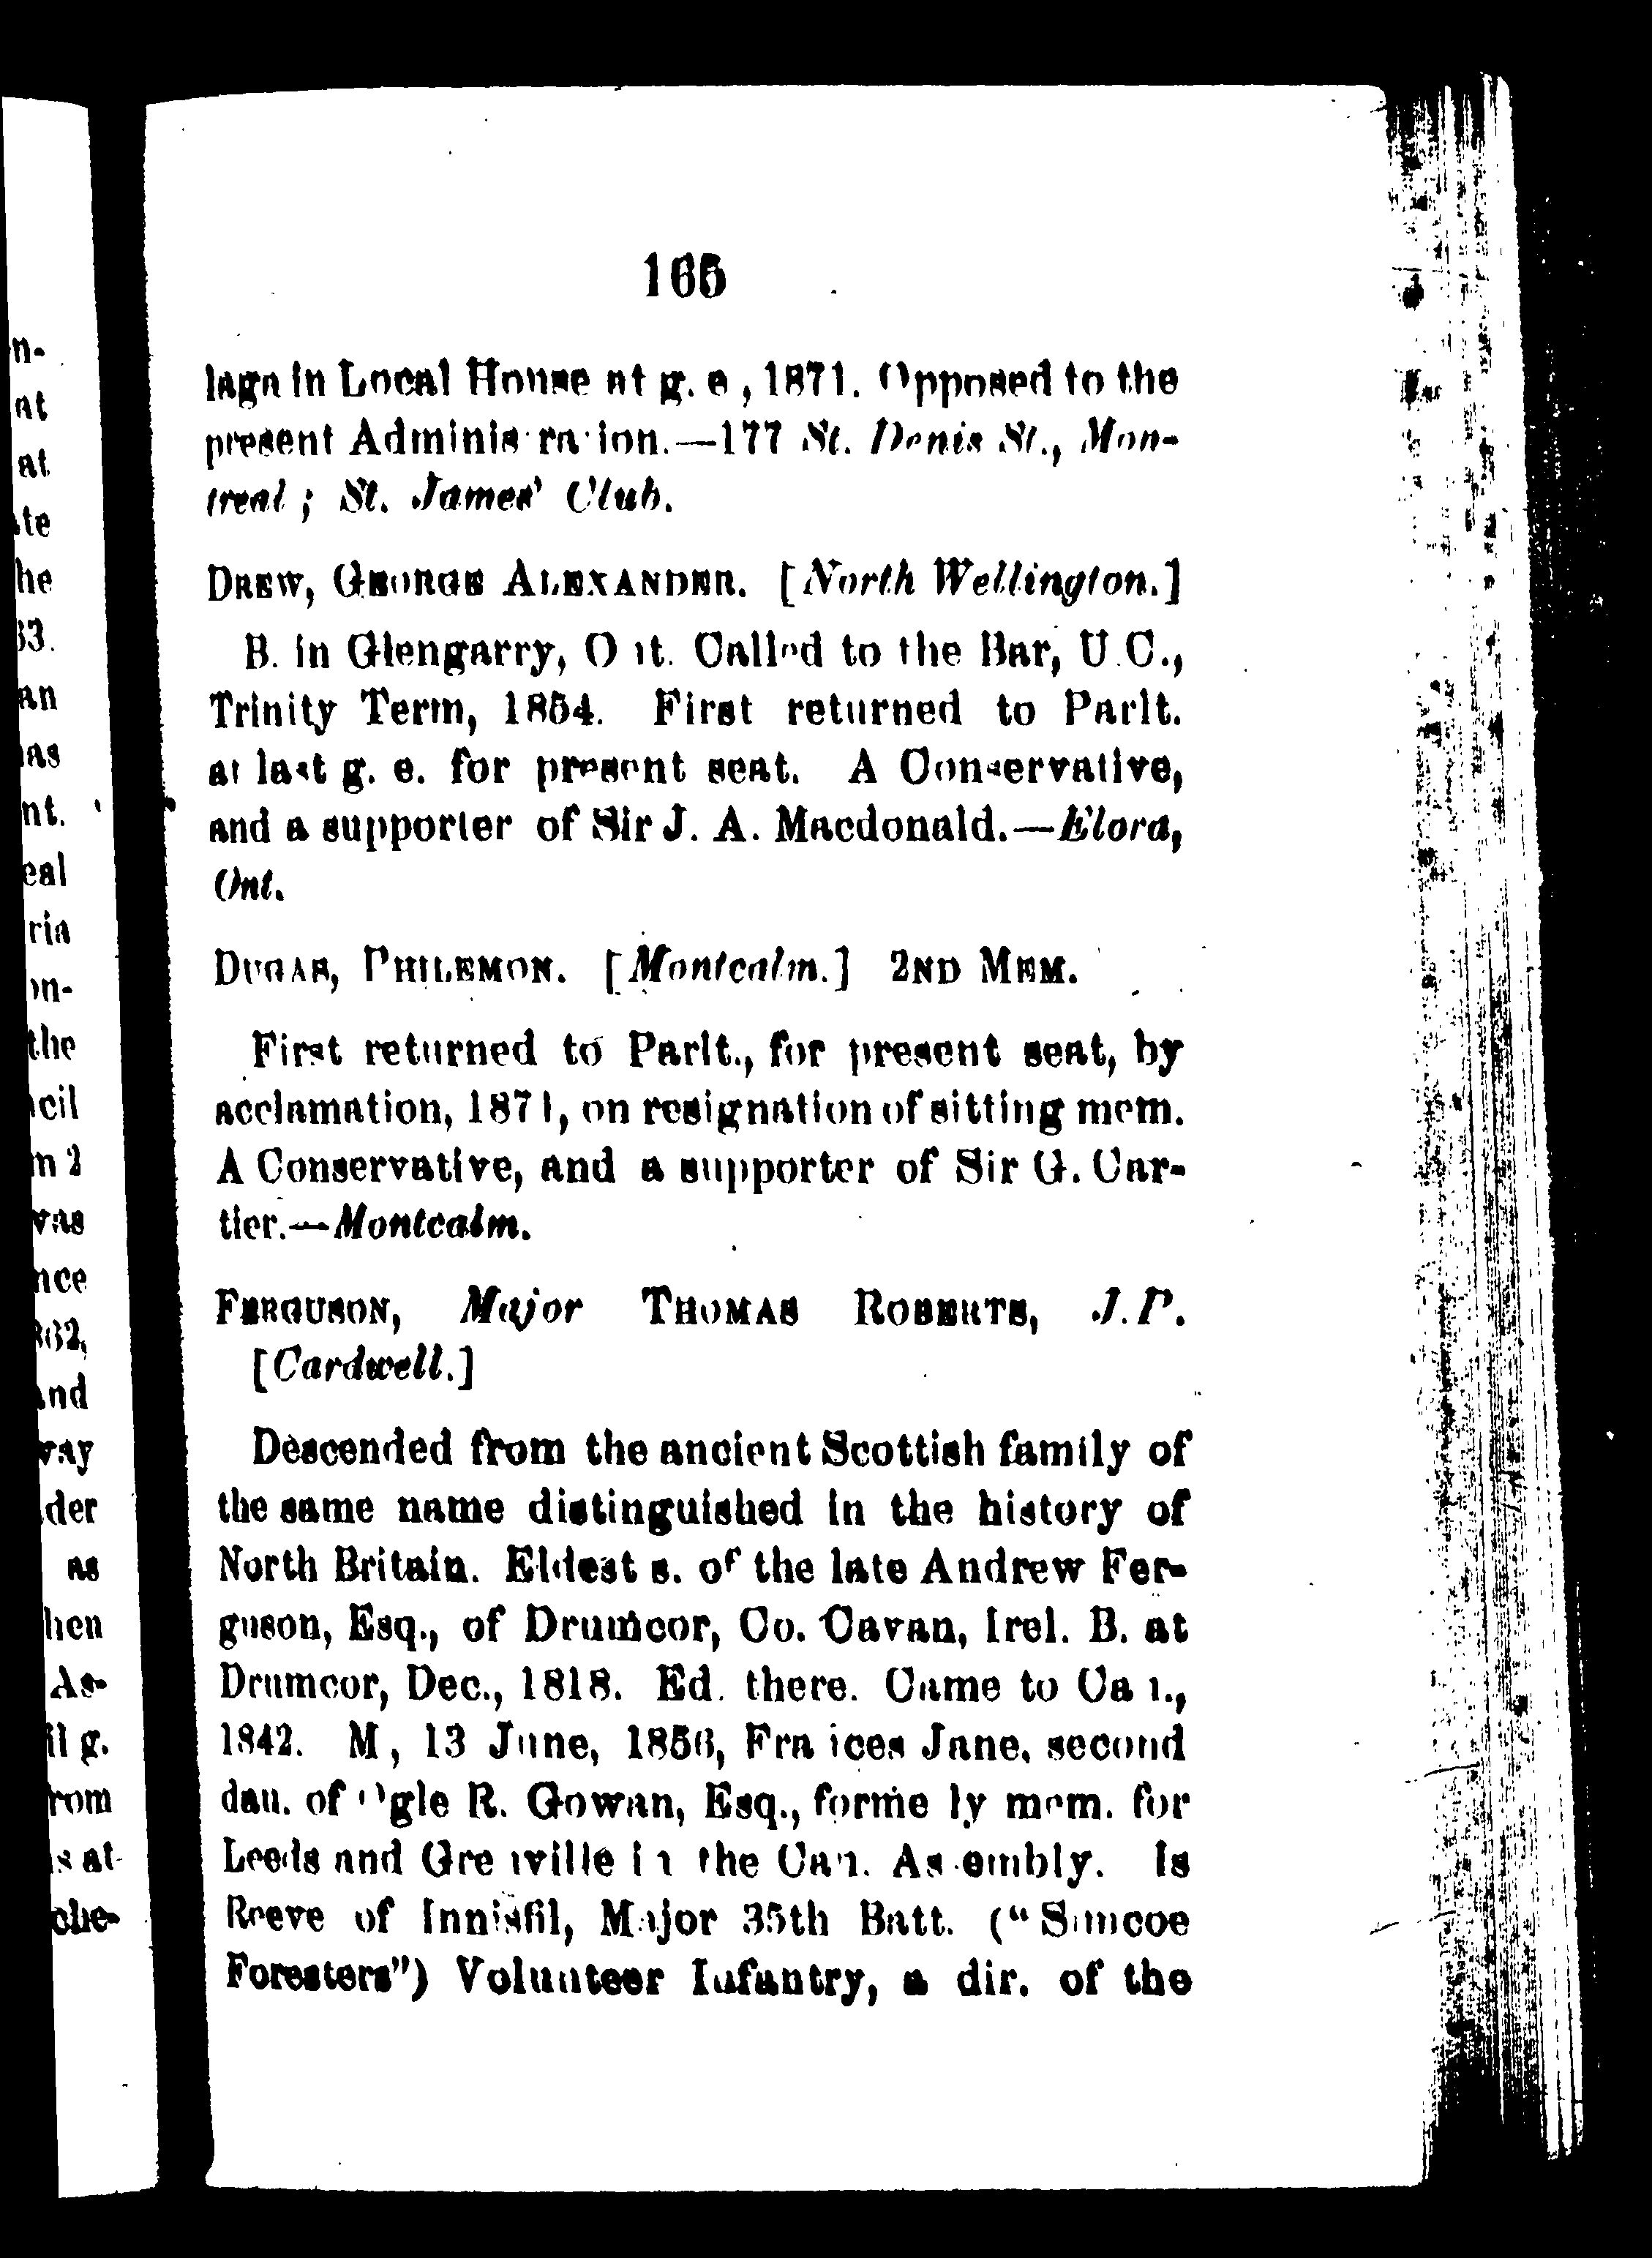 165
laga in Local House at g. e, 1871. Opposed to the
present Adminis ra ion.—177 St. Denis St., Mon-
treal; St. James' Club.
DREW, GEORGE ALEXANDER. [North Wellington.]
B. in Glengarry, Ont. Called to the Bar, U.C.,
Trinity Term, 1854. First returned to Parlt.
at last g. e. for present seat. A Conservative,
and a supporter of Sir J. A. Macdonald.—Elora,
Ont.
DUGAS, PHILEMON. [Montcalm.] 2ND MEM.
First returned to Parlt., for present seat, by
acclamation, 1871, on resignation of sitting mem.
A Conservative, and a supporter of Sir G. Car-
tier.—Montcalm.
FERGUSON, Major THOMAS ROBERTS, J.P.
[Cardwell.]
Descended from the ancient Scottish family of
the same name distinguished in the history of
North Britain. Eldest s. of the late Andrew Fer-
guson, Esq., of Drumcor, Co. Cavan, Irel. B. at
Drumcor, Dec., 1818. Ed. there. Came to Can.,
1842. M, 13 June, 1856, Frances Jane, second
dau. of Ogle R. Gowan, Esq., formerly mem. for
Leeds and Grenville in the Can. Assembly. Is
Reeve of Innisfil, Major 35th Batt. ("Simcoe
Foresters") Volunteer Infantry, a dir. of the